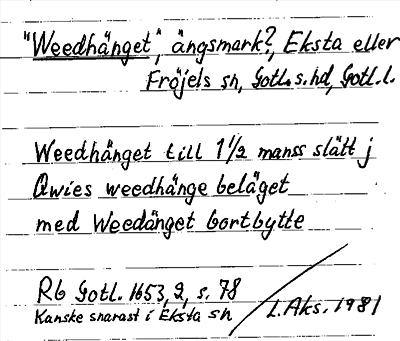 "Weedhänget", ängsmark?, Eksta eller
Fröjels sn, Gotl. s. hd, Gotl. l.
Weedhänget till 1 1/2 manss slätt j
Qwies weedhänge beläget
med Weedänget bortbytte
Rb Gotl. 1653, 2, s. 78
Kanske snarast i Eksta sn
I. Aks. 1981